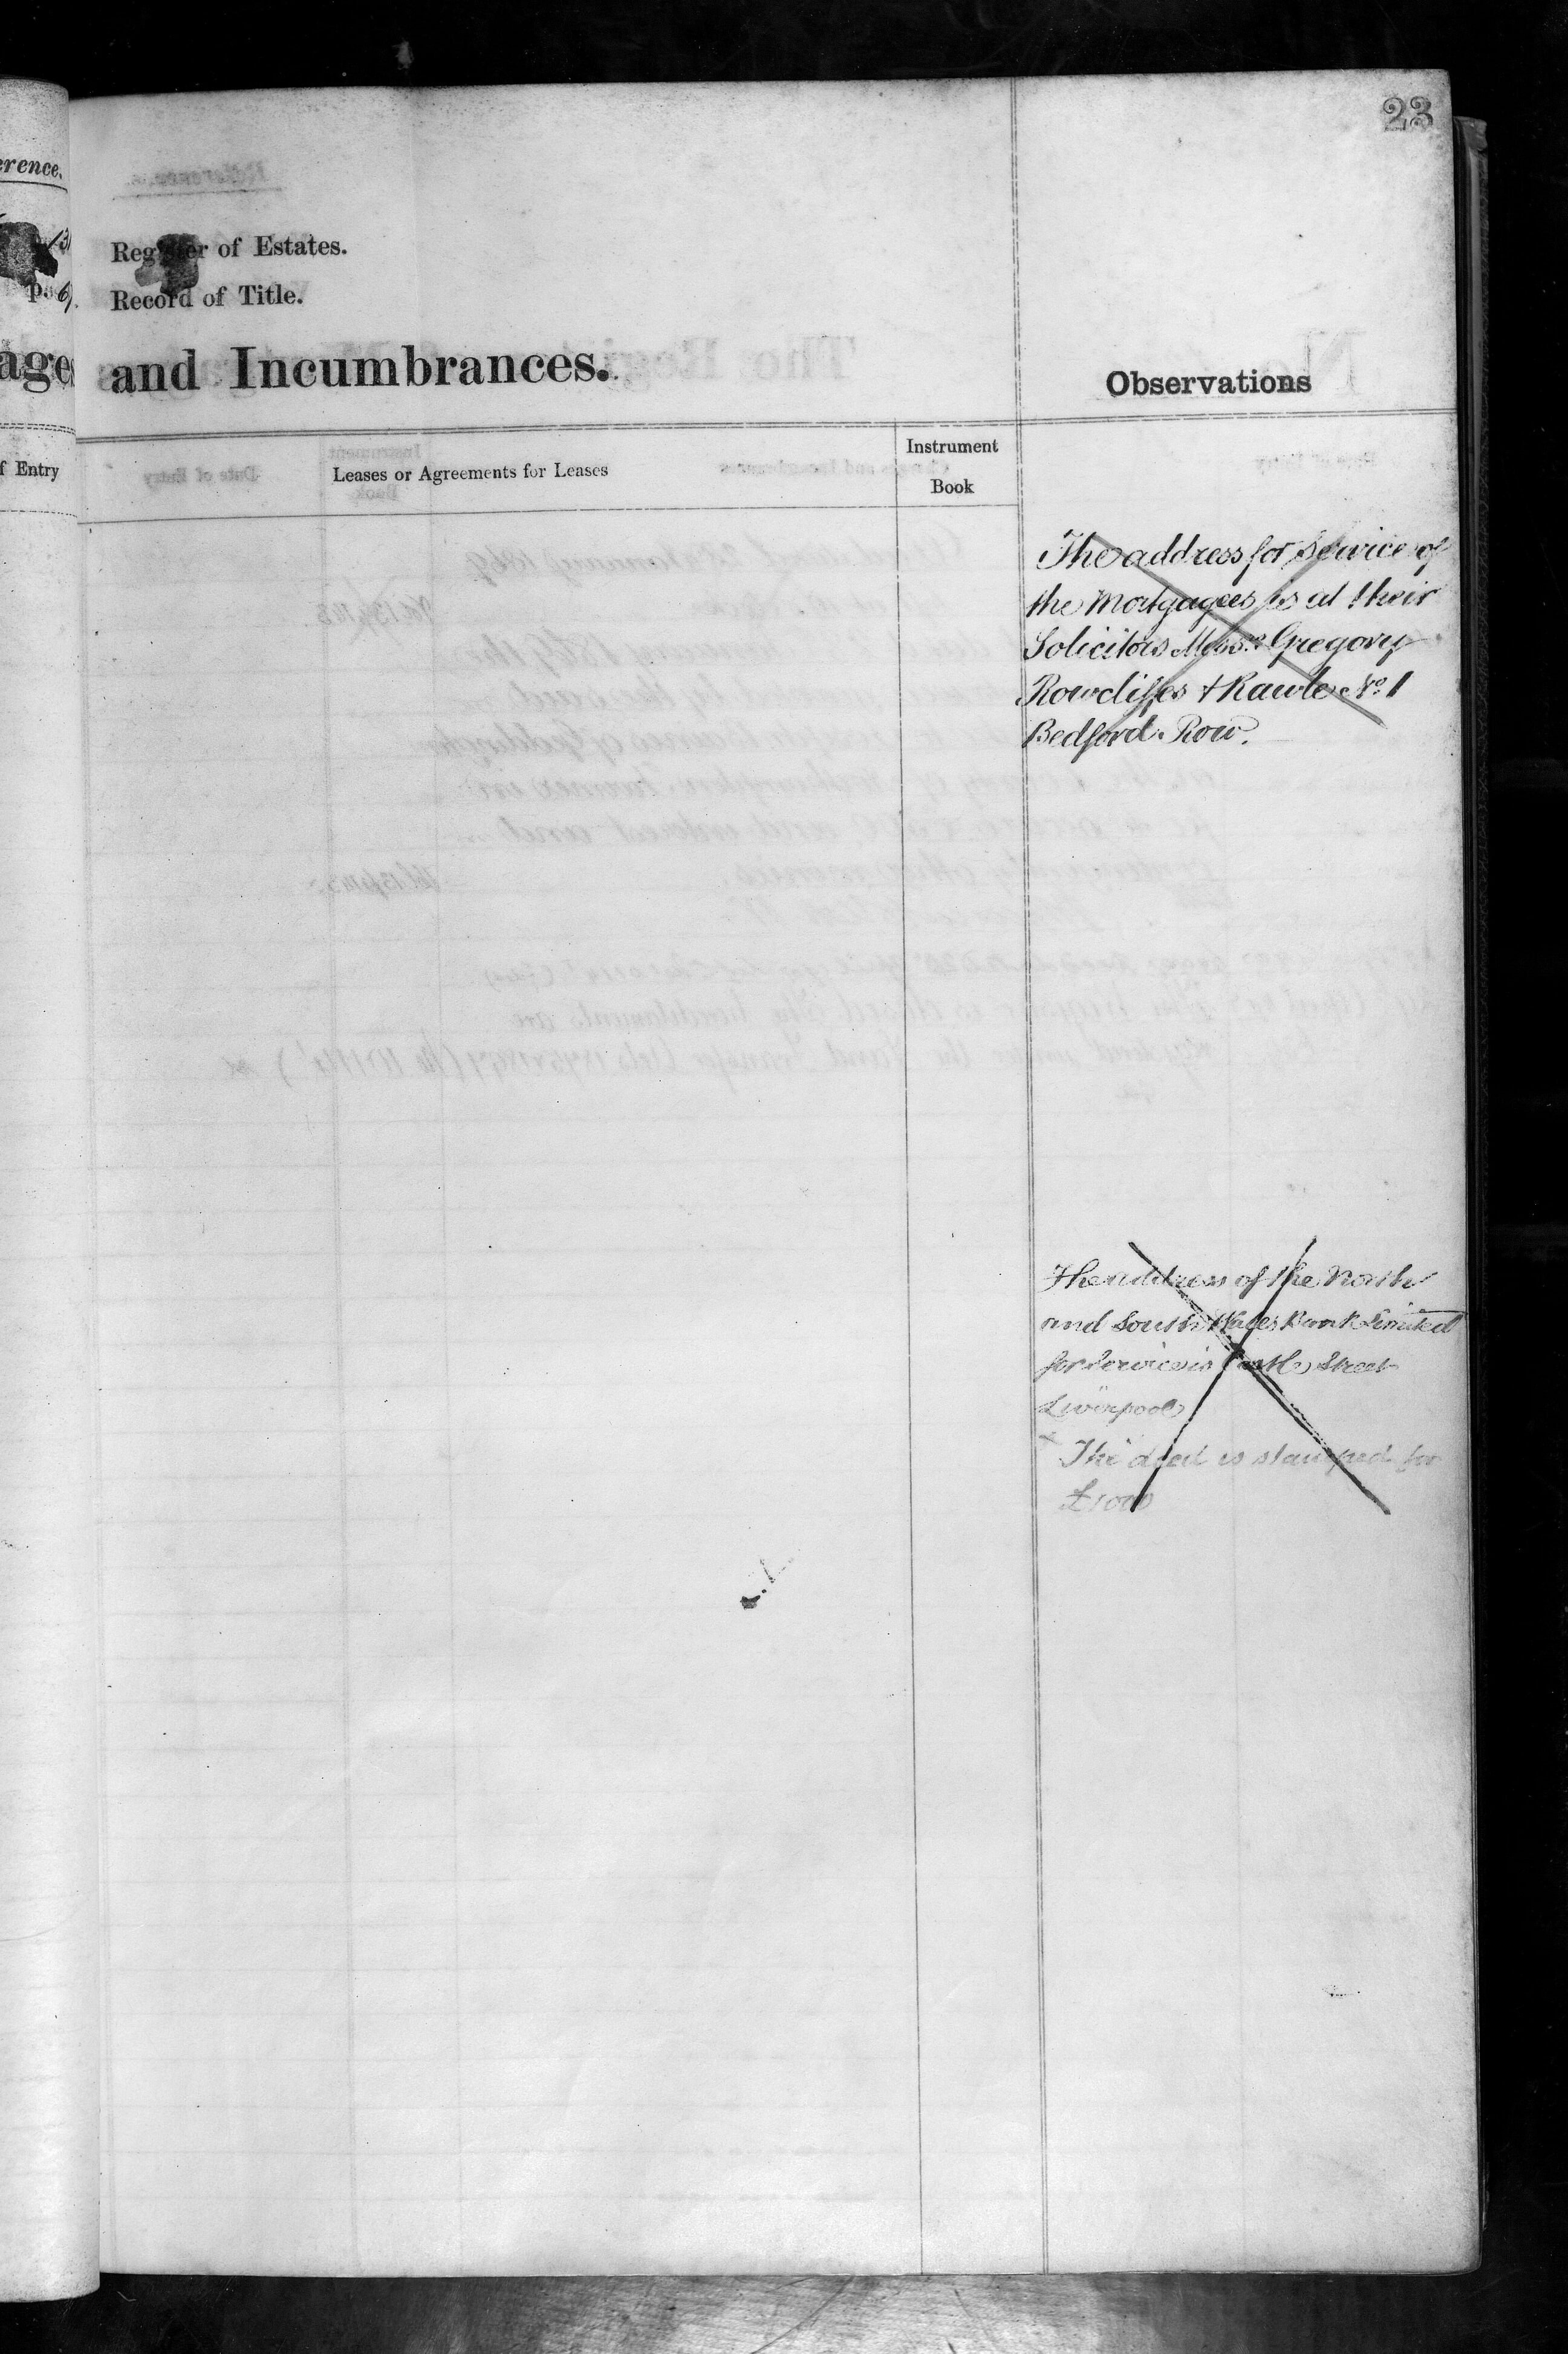 23
erence.
Register of Estates.
Record of Title.
p. 6
age
and Incumbrances.
Observations
f Entry
Leases or Agreements for Leases
Instrument
Book
The address for Service of
the Mortgagees is at their
Solicitors Messrs Gregory
Rowcliffes & Rawle No. 1
Bedford Row.
The address of the North
and South Wales Bank Limited
for Service is Castle Street
Liverpool
x The deed is stamped for
£1000